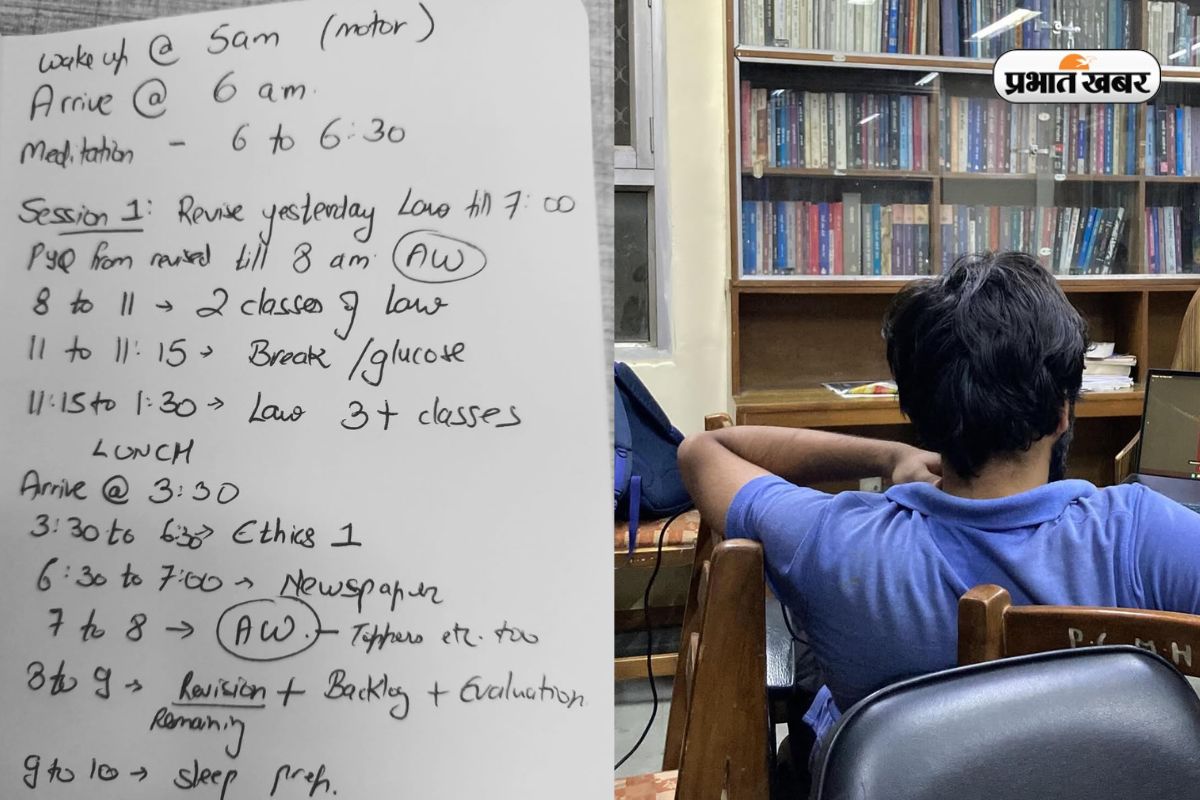 wake up @ 5am (motor)
Arrive @ 6 am.
Meditation - 6 to 6:30
Session 1: Revise yesterday Law till 7:00
PYQ from revised till 8 am. AW
8 to 11 → 2 classes of Law
11 to 11:15 → Break /glucose
11:15 to 1:30 → Law 3+ classes
LUNCH
Arrive @ 3:30
3:30 to 6:30 → Ethics 1
6:30 to 7:00 → Newspaper
7 to 8 → AW. - Toppers etc. too
8 to 9 → Revision + Backlog + Evaluation.
Remaining
9 to 10 → sleep prep.
प्रभात खबर
P.C.M.H